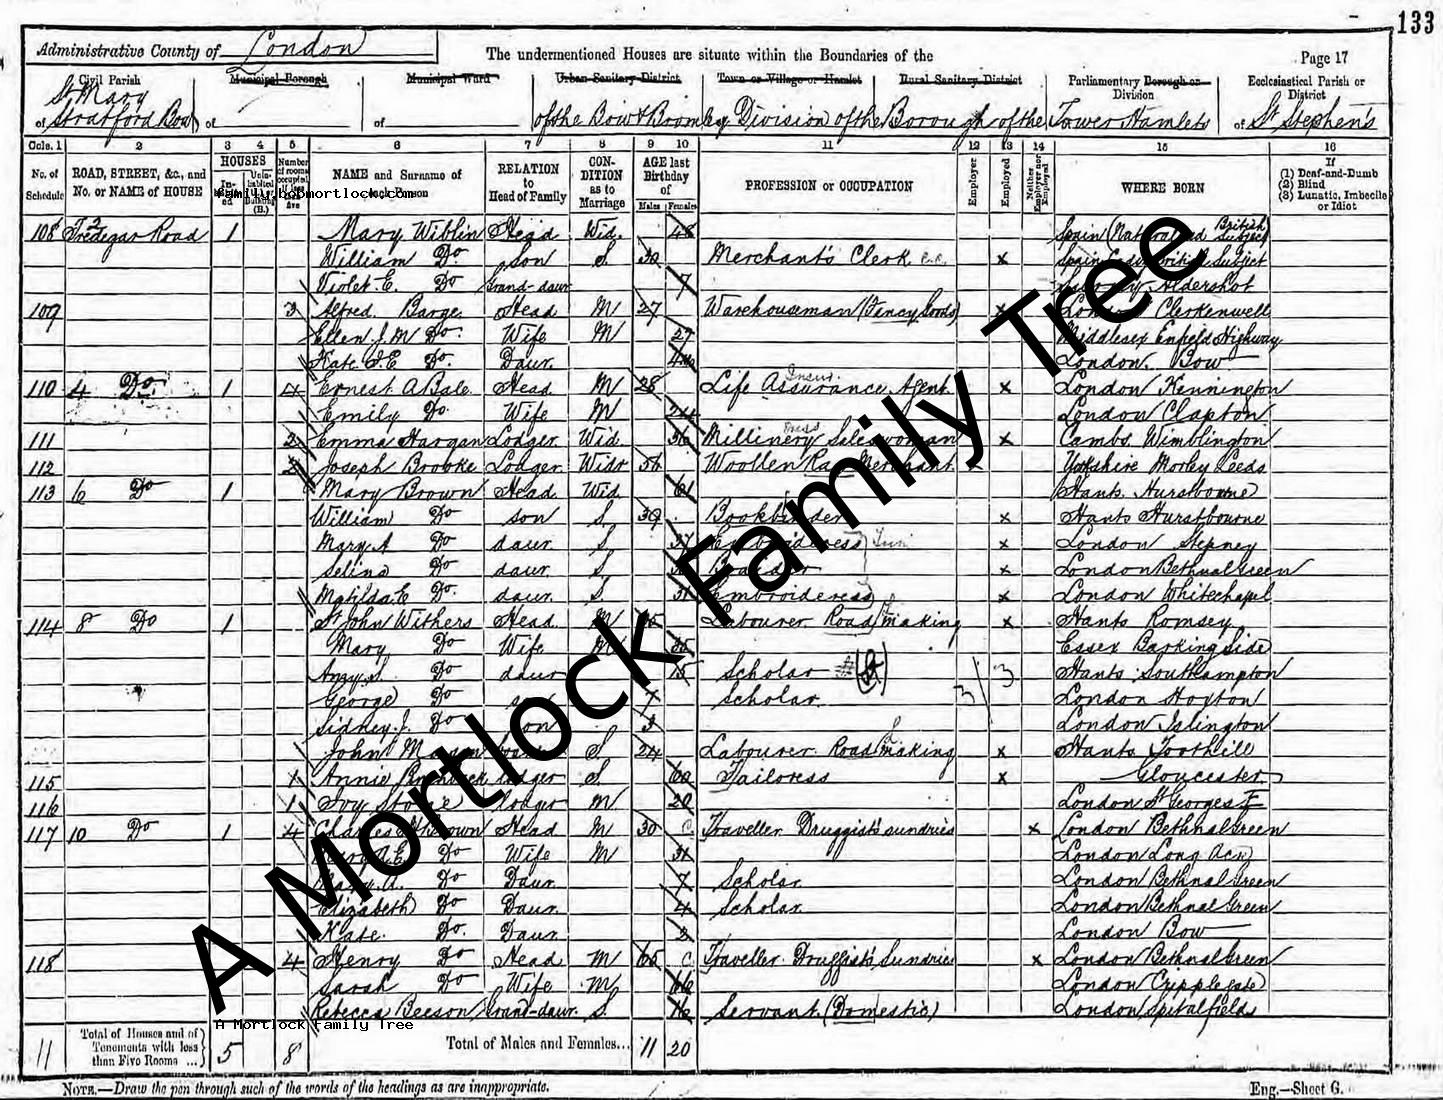 133
Administrative County of London
The undermentioned Houses are situate within the Boundaries of the
Page 17
Civil Parish
Municipal Borough
Municipal Ward
Urban Sanitary District
Town or Village or Hamlet
Rural Sanitary District
Parliamentary Borough or Division
Ecclesiastical Parish or District
of St Mary Stratford Bow
of
of
of the Bow & Bromley Division of the Borough of the Tower Hamlets
of St Stephen's
Cols. 1 2 3 4 5 6 7 8 9 10 11 12 13 14 15 16
No. of Schedule
ROAD, STREET, &c., and No. or NAME of HOUSE
HOUSES
Number of rooms occupied if less
NAME and Surname of each Person
RELATION to Head of Family
CONDITION as to Marriage
AGE last Birthday of
Males Females
PROFESSION or OCCUPATION
Employer
Employed
Neither Employer nor Employed
WHERE BORN
If
(1) Deaf-and-Dumb
(2) Blind
(3) Lunatic, Imbecile or Idiot
family.bobmortlock.com
108 2 Tredegar Road 1 Mary Wiblin Head Wid. 48 Spain (Naturalised British Subject)
William Do son S. 30 Merchant's Clerk x Spain British Subject
Violet E. Do Grand-daur 7 Surrey Aldershot
109 3 Alfred Barge Head M 27 Warehouseman (Fancy Goods) x London Clerkenwell
Ellen J. M Do. Wife M 27 Middlesex Enfield Highway
Kate Do. Daur. London Bow
110 4 Do 1 4 Ernest A Bale Head M 28 Life Assurance Agent x London Kennington
Emily Do. Wife M 24 London Clapton
111 2 Emma Hargan Lodger Wid. 36 Millinery Saleswoman x Cambs. Wimblington
112 2 Joseph Brooke Lodger Widr 56 Woollen Rag Merchant Yorkshire Morley Leeds
113 6 Do 1 Mary Brown Head Wid. 61 Hants. Hurstbourne
William Do son S. 39 Bookbinder x Hants Hurstbourne
Mary A Do daur. S. 37 Embroideress x London Stepney
Selina Do daur. S. x London Bethnal Green
Matilda E Do. daur. S. 31 Embroideress x London Whitechapel
114 8 Do 1 St John Withers Head M Labourer Road making x Hants Romsey
Mary Do Wife M 35 Essex Barking Side
Do daur 15 Scholar Hants Southampton
George Do Scholar London Hoxton
Sidney J. Do son 3 London Islington
John S. 24 Labourer Road making x Hants Toothill
115 1 Annie lodger S. 60 Tailoress x Gloucester
116 1 Ivy Stone lodger M 20 London St Georges E
117 10 Do 1 4 Charles Brown Head M 30 Traveller Druggist's sundries x London Bethnal Green
Do Wife M 31 London Long Acre
Mary A. Do Daur. 7 Scholar London Bethnal Green
Elizabeth Do Daur. 4 Scholar London Bethnal Green
Kate Do. Daur. 2 London Bow
118 4 Henry Do Head M 65 Traveller Druggist's Sundries x London Bethnal Green
Sarah Do Wife M 66 London Cripplegate
Rebecca Beeson Grand-daur. S. 16 Servant (Domestic) London Spitalfields
A Mortlock Family Tree
A Mortlock Family Tree
11 Total of Houses and of Tenements with less than Five Rooms ... 5 8 Total of Males and Females... 11 20
NOTE.—Draw the pen through such of the words of the headings as are inappropriate.
Eng.—Sheet G.